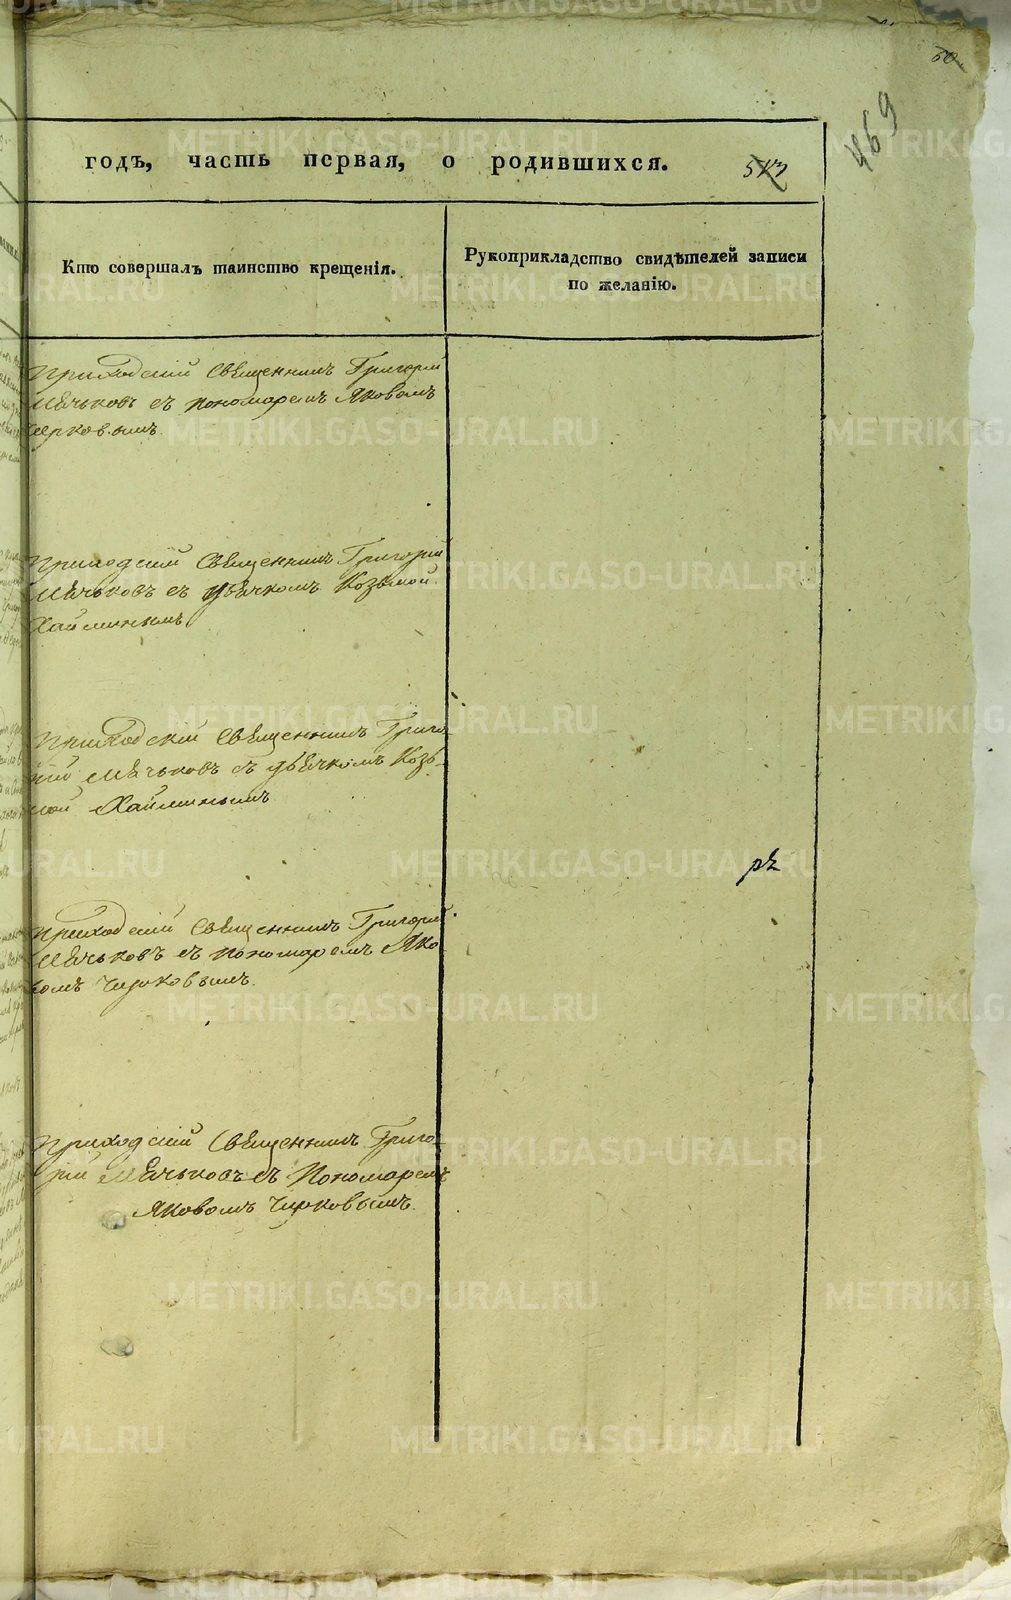 50
469
годъ, часть первая, о родившихся.
513
Кто совершалъ таинство крещенія.
Рукоприкладство свидѣтелей записи
по желанію.
Приходскій Священникъ Григорій
Мѣчьковъ съ пономаремъ Яковомъ
Чирковымъ.
Приходскій Священникъ Григорій
Мѣчьковъ съ дьячкомъ Козьмой
Хайминымъ
Приходскій Священникъ Григо
рій Мѣчьковъ съ дьячкомъ Козь
мой Хайминымъ
рѣ
Приходскій Священникъ Григорій
Мѣчьковъ съ пономаремъ Яко-
вомъ Чирковымъ.
Приходскій Священникъ Григо-
рій Мѣчьковъ съ Пономаремъ
Яковомъ Чирковымъ.
METRIKI.GASO-URAL.RU